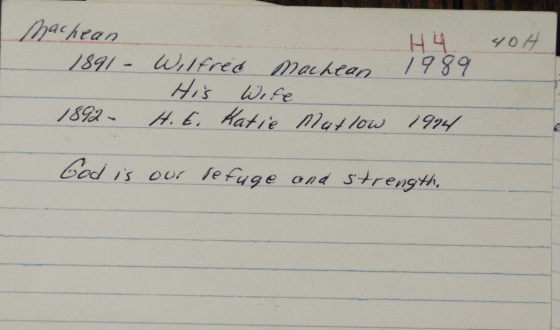 MacLean
H4 40H
1891 - Wilfred MacLean 1989
His Wife
1892 - H. E. Katie Matlow 1974
God is our refuge and strength.